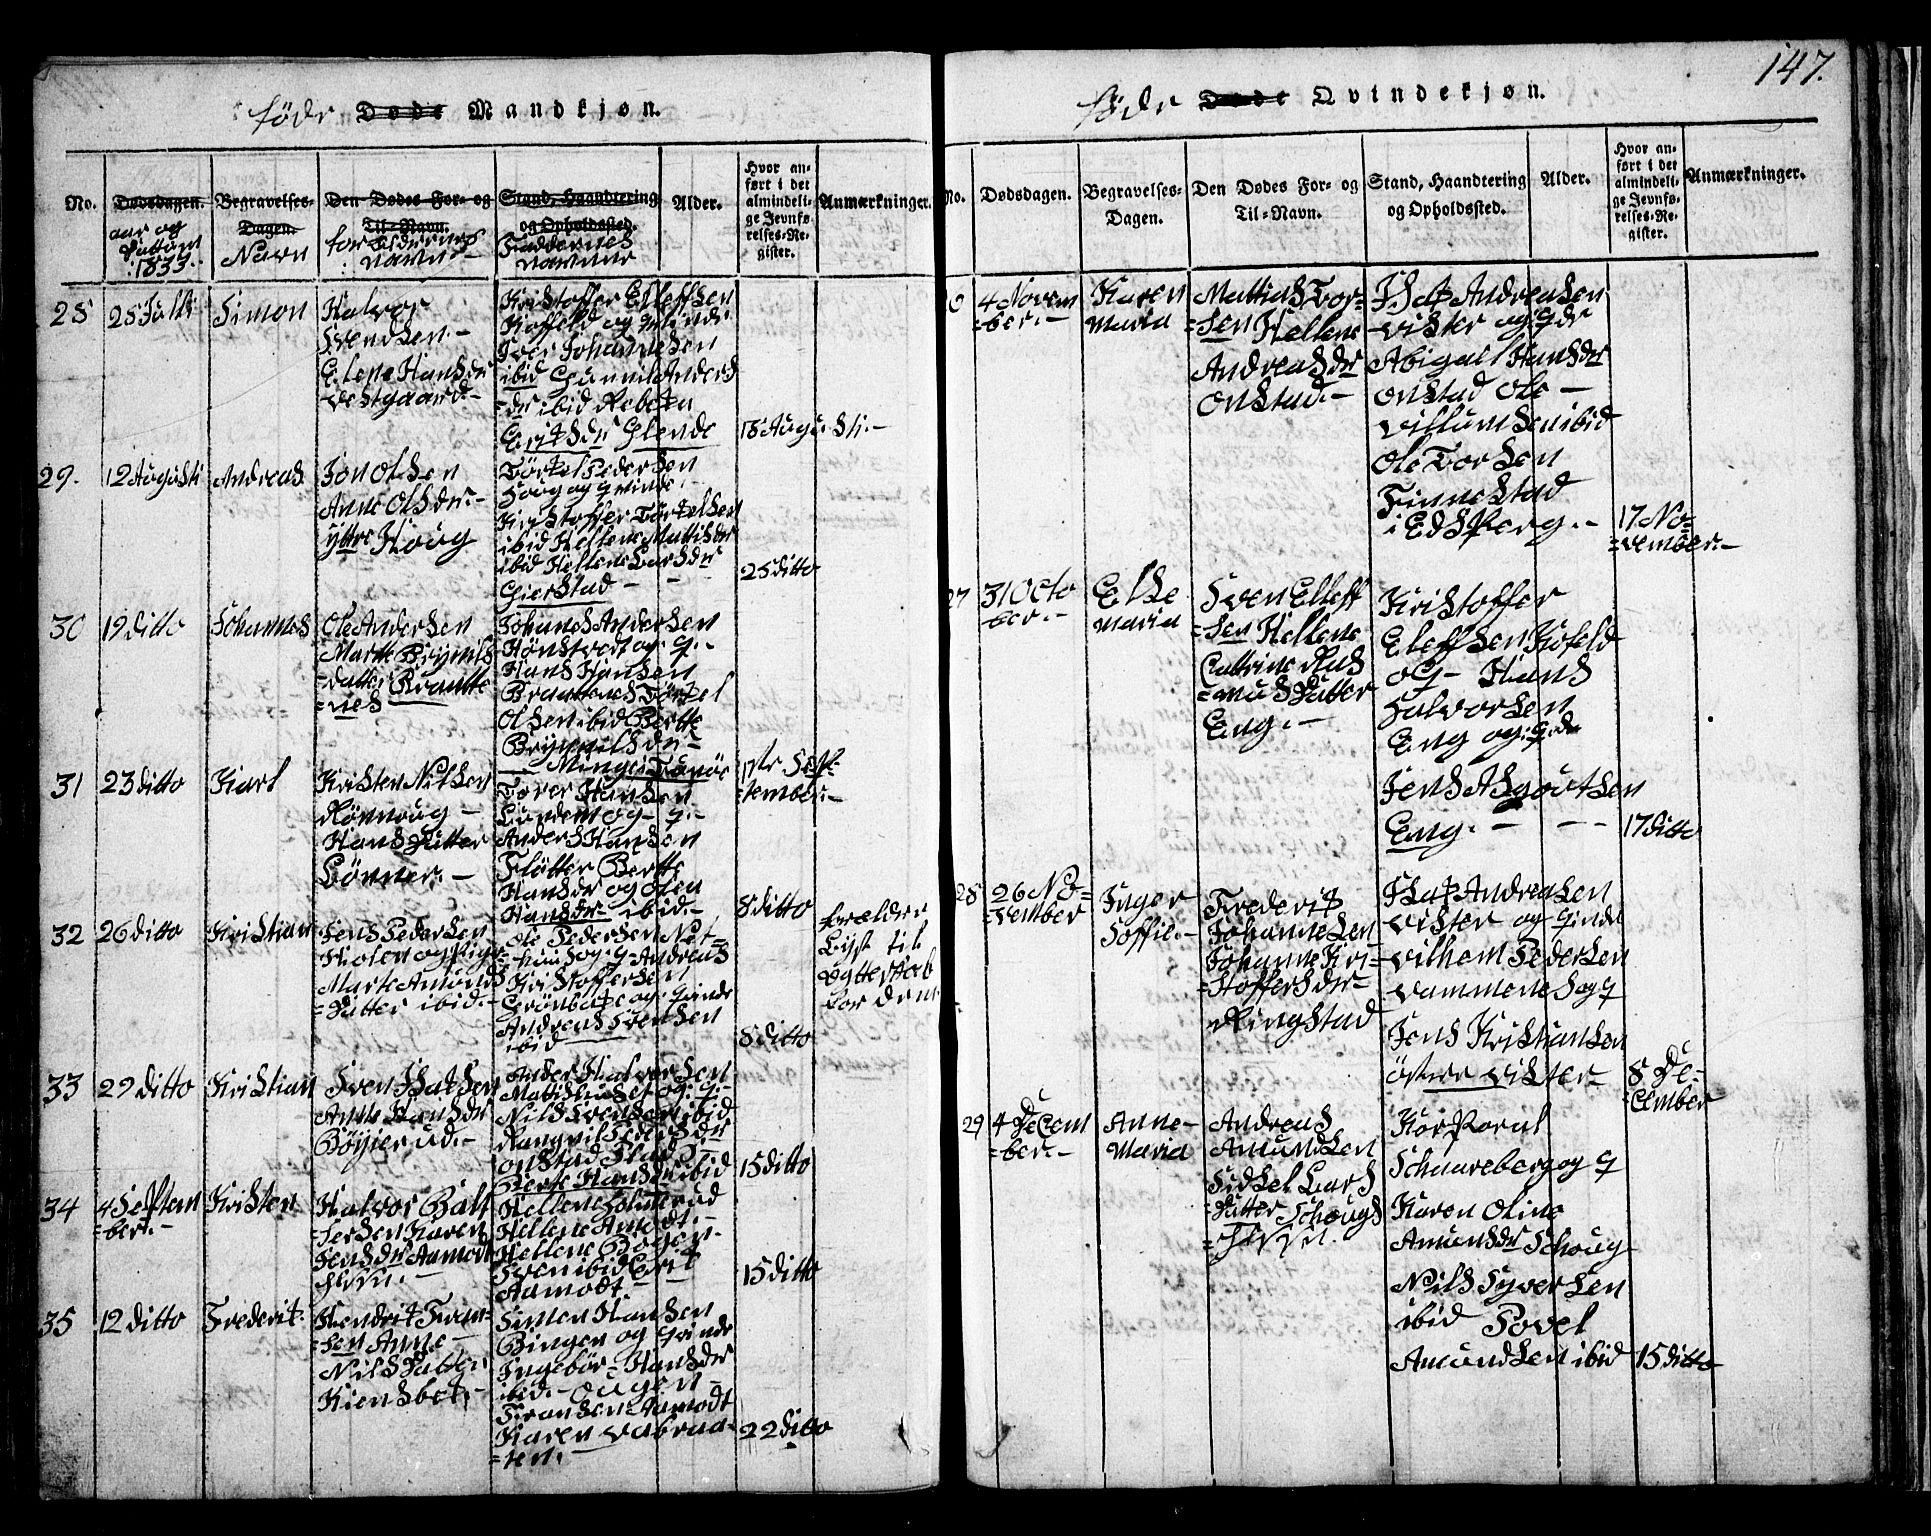 147.
födr Döde Mandkjøn.
No.
Dødsdagen.
aar og
Dattum
1833.
Begravelses-
Dagen.
Navn
Den Dødes For- og
Til-Navn.
forældrenes
navnne
Stand, Haandtering
og Opholdssted.
Faddernes
navnne
Alder.
Hvor an-
ført i det
almindeli-
ge Jevnfø-
relses-Re-
gister.
Anmærkninger.
28
28 Julli
Simon
Halvor
Svendsen.-
Elene Hansdr
Vestgaard.-
Kristoffer Elleffsen
Koffeld og qvinde
Iver Johannesen
ibid Gunnild Anders
=dr ibid Rebeka
Eriksdr Glende
18 Augusti.-
29.
12 Augusti
Andreas
Jon Olsen
Anne Olsdr.-
yttre Houg
Törkel Pedersen
Houg og qvinde.-
Kristoffer Törkelsen
ibid Hellene Mattisdr
ibid Hellene Larsdr
Gierstad -
25 ditto
30
19 ditto
Johannes
Ole Andersen
Marte Brynils
=datter Braatte
=nes
Johanes Andersen
Hönsvert og q.-
Hans Hansen
Braattenes Törkel
Olsen ibid Bertte
Brynnilsdr.-
Minge Tunöe
1ste Sep-
=tember.-
31
23 ditto
Karl
Kristen Nilsen
Rönnoug -
Hans Datter
Lönner.-
Torer Hansen
Lunden og - q.-
Anders Hansen
Fløtter Bertte
Hansdr og Olea
Hansdr ibid.-
8 ditto
32
26 ditto
Kristian
Jens Pedersen
Kiolen og Pige
Marte Amunds
=Datter ibid.-
Ole Pedersen Net-
=huus og q Andreas
Kristoffersen
Grönbeke og qvinde
Andreas Svensen
ibid
8 ditto
forælder
Lyst til
Ægteskab
for dem
33
29 ditto
Kristian
Sven Isaksen
Anne Hansdr
Böyierud.-
Ander Halvorsen
Mattishuset og q.-
Nils Svensen ibid
Rangvil Pedersdr
onstad Plads
Berte Hansdr ibid
15 ditto
34
4 Septem
=ber.-
Kristen
Halvor Balt
=sersen Karen
Jensdr Aamodt
Hellene Holmerud
Hellene Aamodt.-
Hellene Bogen.-
Sven ibid Erik
Aamodt.-
15 ditto
35
12 ditto
Frederik.
Hendrik Fran-
=sen Anne -
Nils Datter
Kiensbek.-
Simen Hansen
Bingen og qvinde
Ingebör - Hansdr
ibid.- Ougen -
Fransen Aamodt
Karen Vabraa-
=ten.-
22 ditto
födr Döde Qvindekjøn.
No.
Dødsdagen.
Begravelses-
Dagen.
Den Dødes For- og
Til-Navn.
Stand, Haandtering
og Opholdssted.
Alder.
Hvor an-
ført i det
almindeli-
ge Jevnfø-
relses-Re-
gister.
Anmærkninger.
6
4 Novem
=ber.-
Karen
Maria
Mattias Tor-
=sen Hellene
Andreasdr
Onstad.-
Isak Andreasen
Vister og qde
Abigall Hansdr
onstad Ole -
Villumsen ibid
Ole Torsen
Finnestad
i Edsberg.-
17 No-
=vember.-
27
31 Octo
=ber.-
Else
Maria
Sven Elleff
=sen Hellene
Cattrine Ras
=mus Datter
Eng.-
Kristoffer
Eleffsen Kofeld
og - Hans
Halvorsen
Eng og qde
Jens Asgoutsen
Eng.- - - -
17 ditto
28
26 No-
=vember
Inger
Soffie.-
Frederik
Johannesen
Johanne Kri-
=stoffersdr-
Ringstad
Isak Andreasen
Vister og qinde
Vilhem Pedersen
Vammenes og q
Jens Kristiansen
östre Vister-
8 De-
=cember
29
4 Decem
=ber.-
Anne-
Maria
Andreas
Amundsen
Sidsel Lars
=Datter Schougs
Korporal
Schaareberg og q
Karen Oline
Amunsdr Schoug
Nils Syversen
ibid Povel
Amundsen ibid
15 ditto